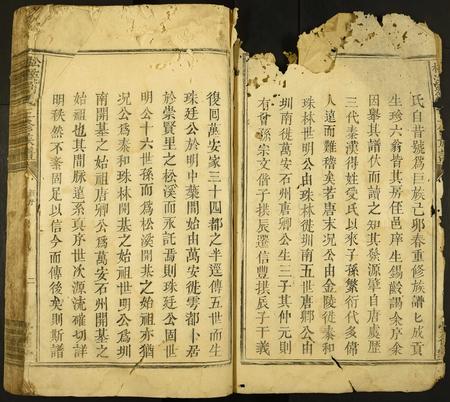 氏自昔號爲巨族己卯春重修族譜已成貢
生珍六翁皆其房侄邑庠生錫齡謁余序余
因舉其譜伏而讀之知其發源肇自唐虞歷
三代秦漢得姓受氏以來子孫繁衍代多偉
人遠而難稽矣若唐末况公由金陵徙泰和
珠林世明公由珠林徙圳南五世唐卿公由
圳南徙萬安石州唐卿公生三子其仲元則
有曾孫宗文偕子拱辰遷信豐拱辰子干義
復回萬安家三十四都之半逕傳五世而生
珠廷公於明中葉開始由萬安徙雩都卜居
於崇賢里之松溪而永託焉則珠廷公固世
明公十六世孫而爲松溪開基之始祖亦猶
况公爲泰和珠林開基之始祖世明公爲圳
南開基之始祖唐卿公爲萬安石州開基之
始祖也其間脈遠系真序世次源流確切詳
明秩然不紊固足以信今而傳後矣則斯譜
二